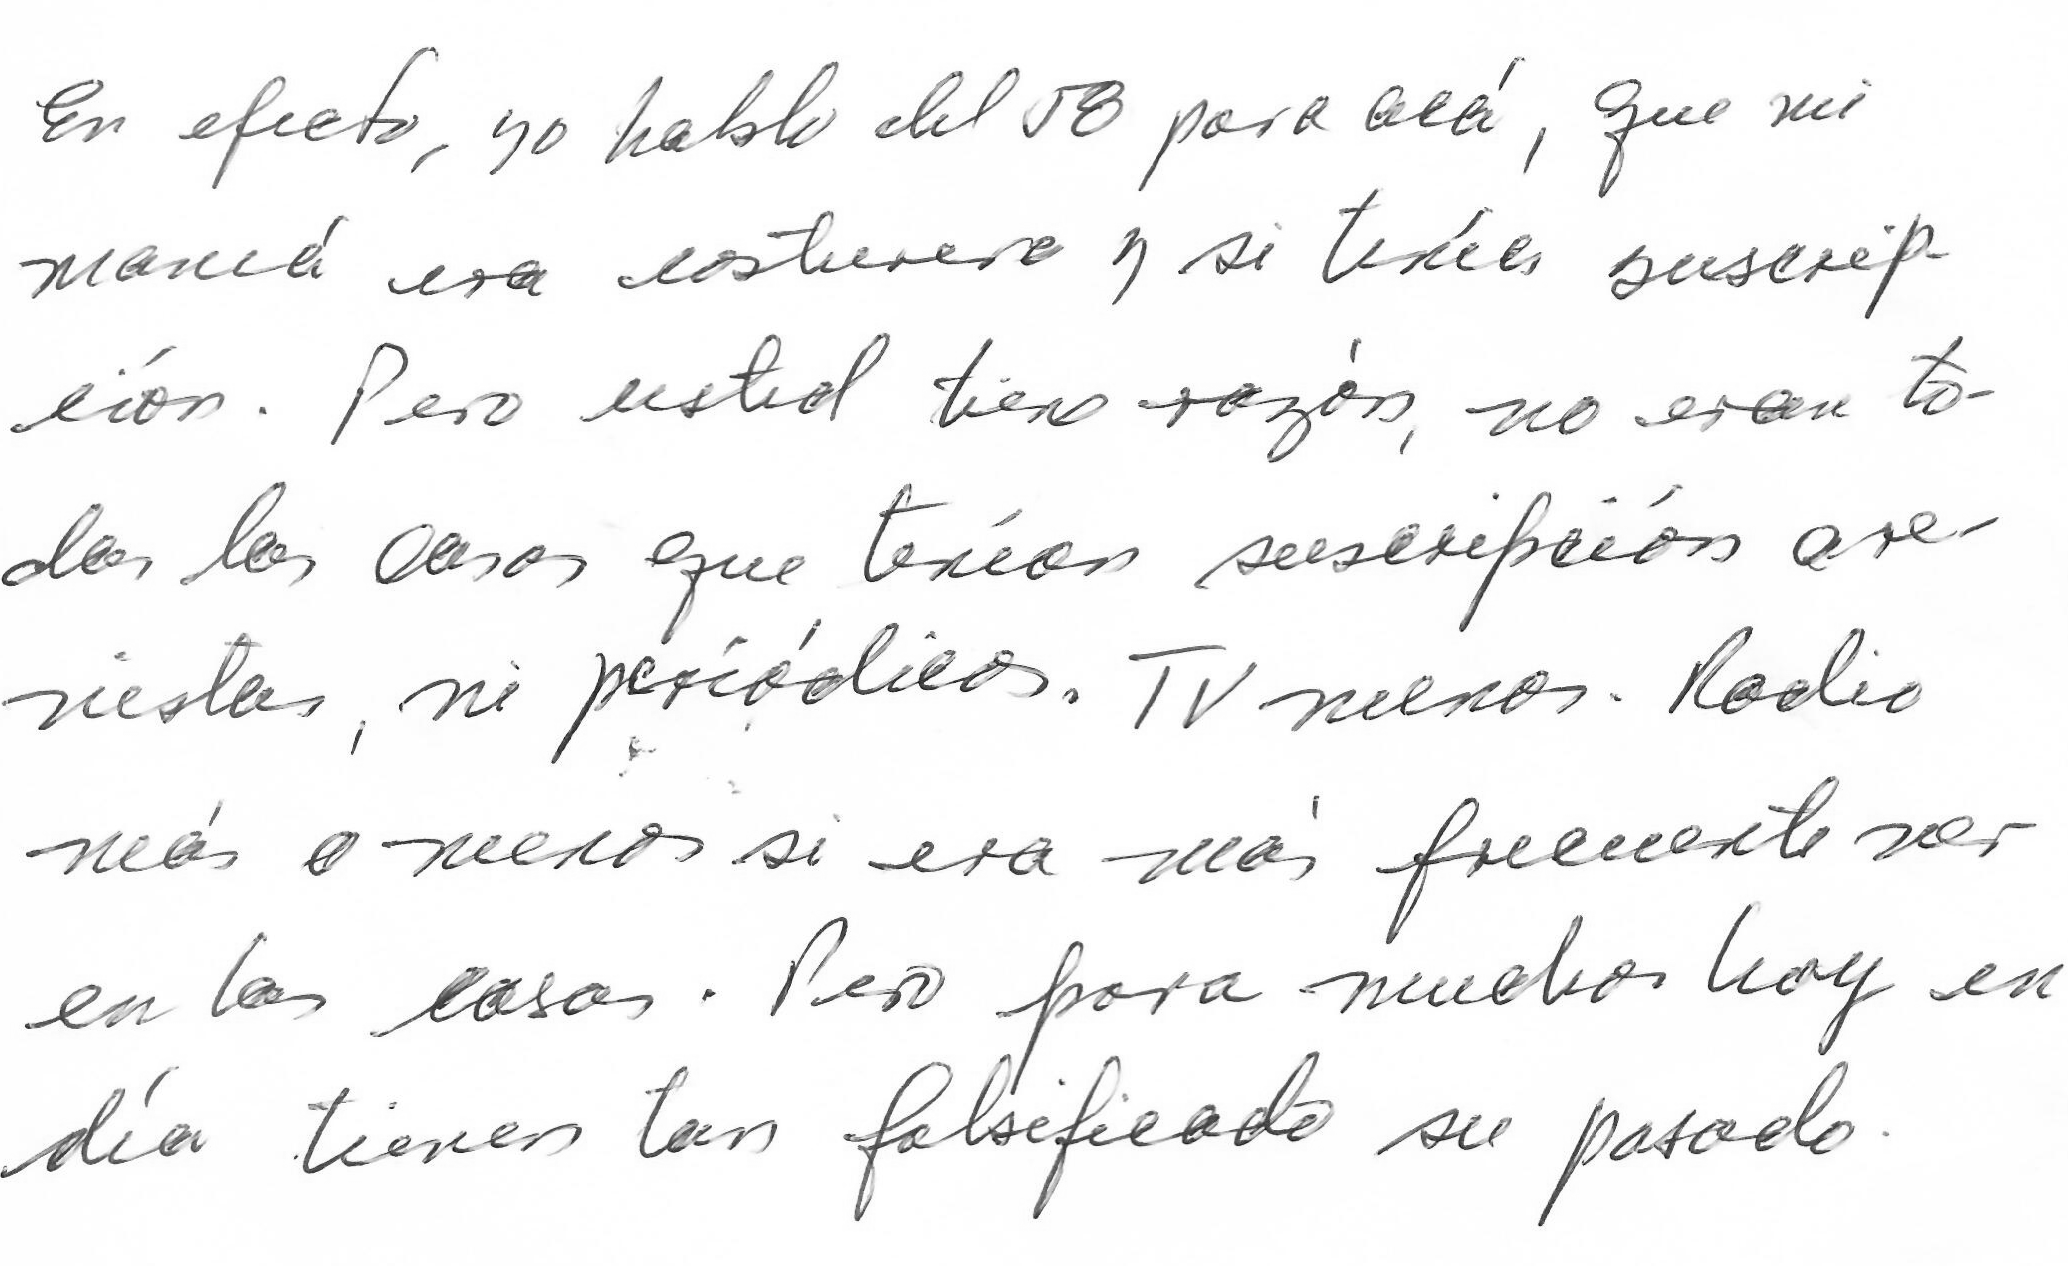 En efecto, yo hablo del 58 para acá, que mi
mamá era costurera y si tenía suscrip-
ción. Pero usted tiene razón, no eran to-
das las casas que tenían suscripción a re-
vistas, ni periódicos. TV menos. Radio
más o menos si era más frecuente ver
en las casas. Pero para muchos hoy en
día tienen tan falsificado su pasado.